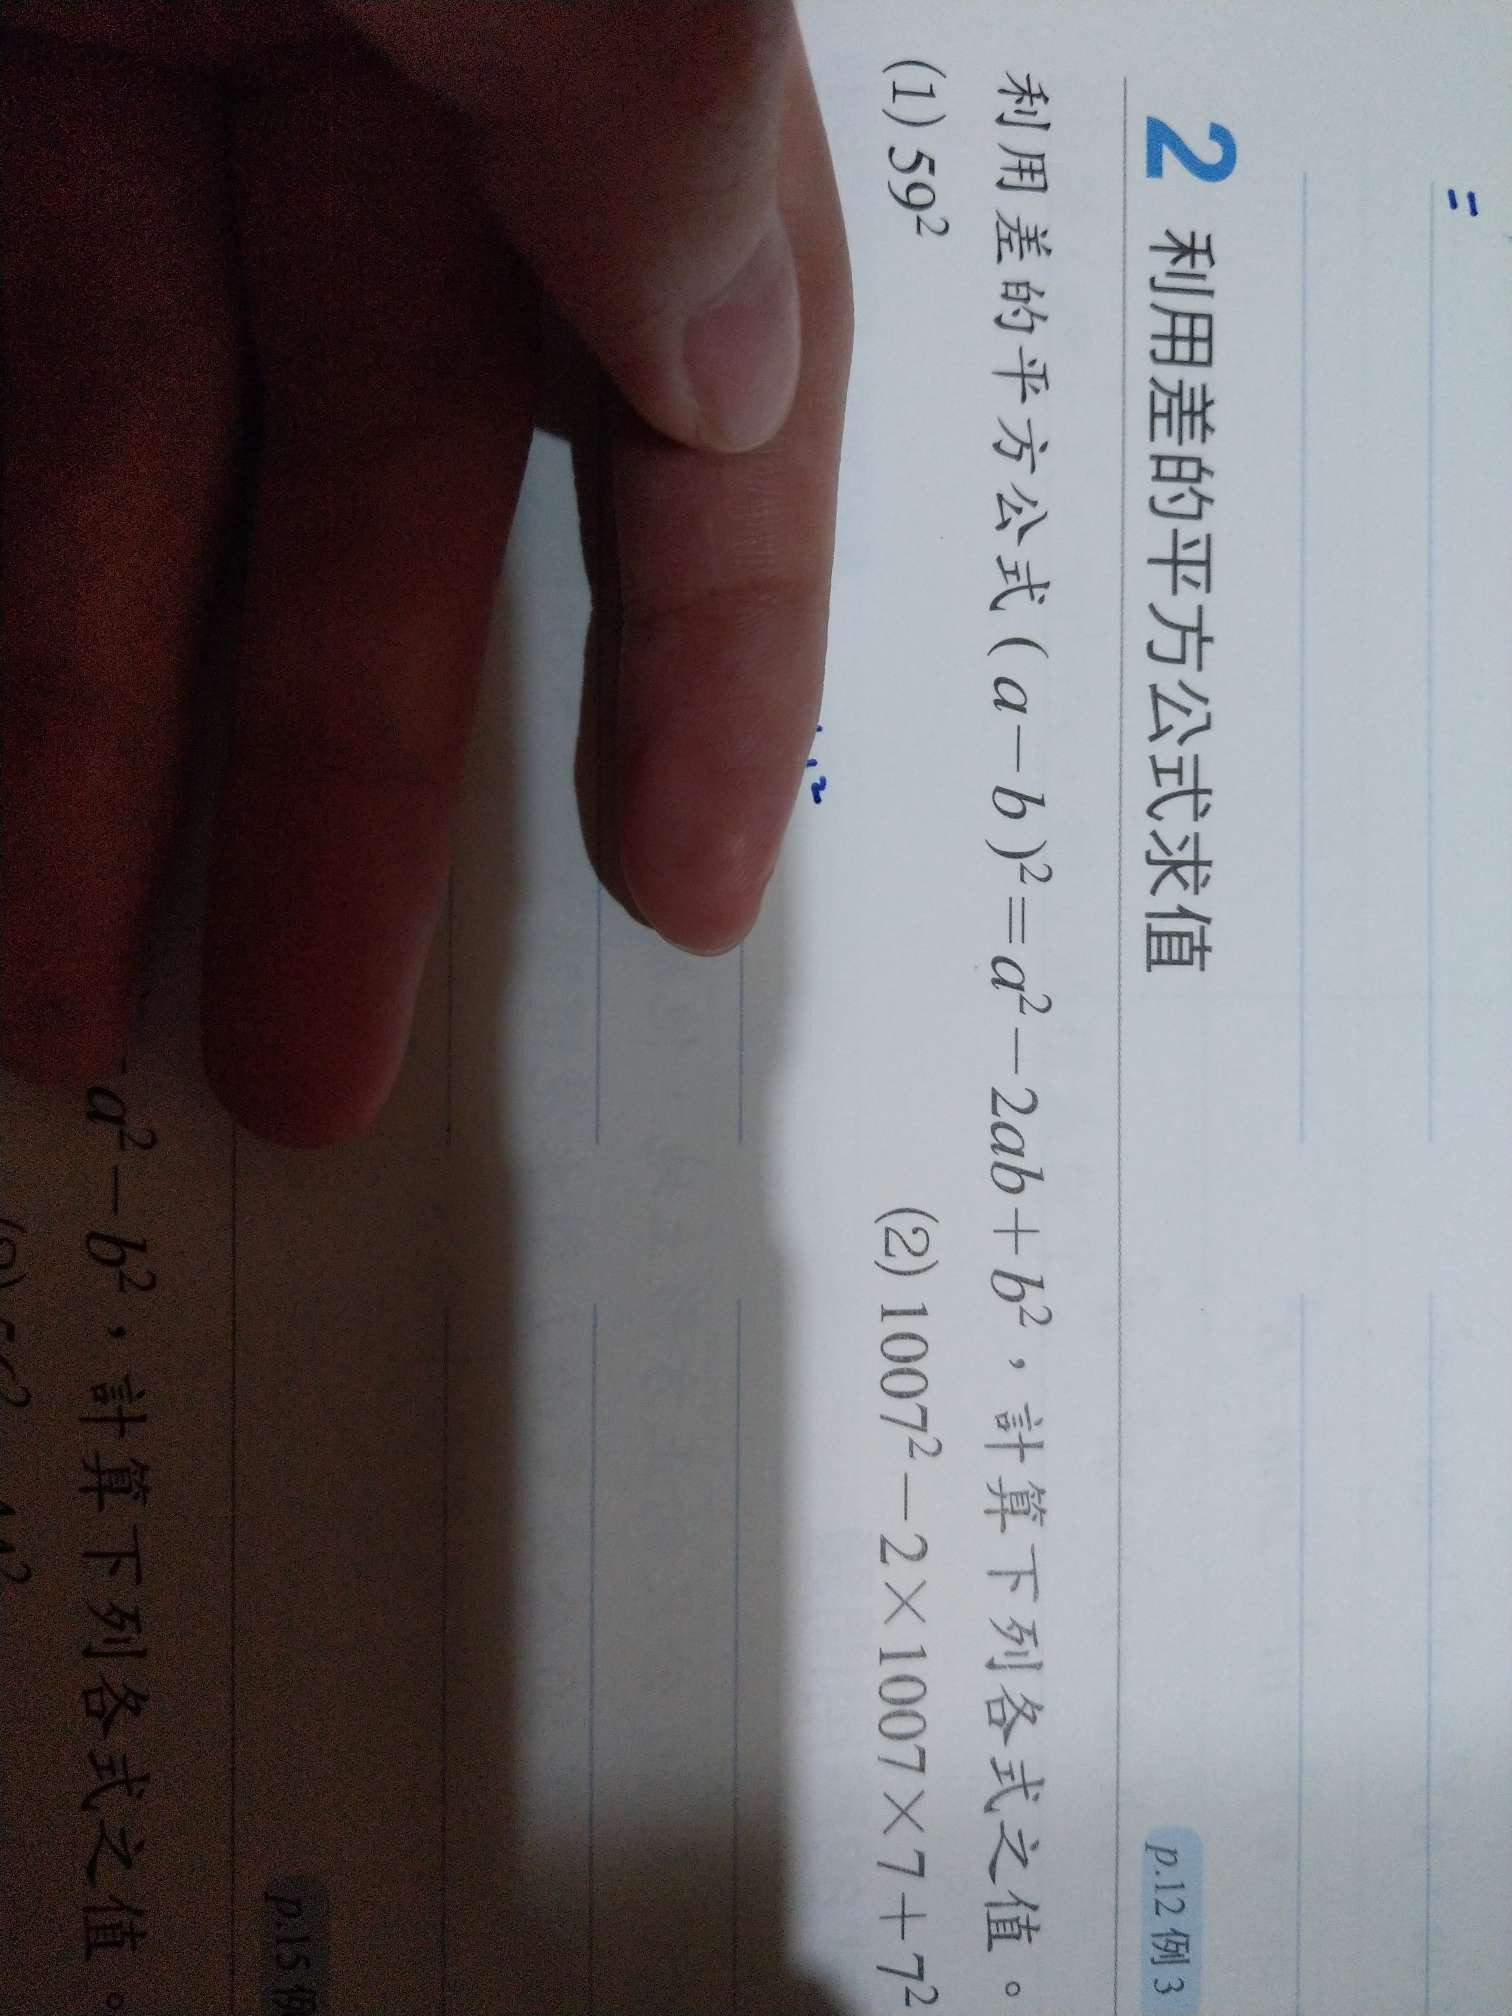 =
2 利用差的平方公式求值 p.12 例3
利用差的平方公式(a-b)²=a²-2ab+b²,計算下列各式之值。
(1) 59² (2) 1007²-2×1007×7+7²
p.15 例
a²-b²,計算下列各式之值。